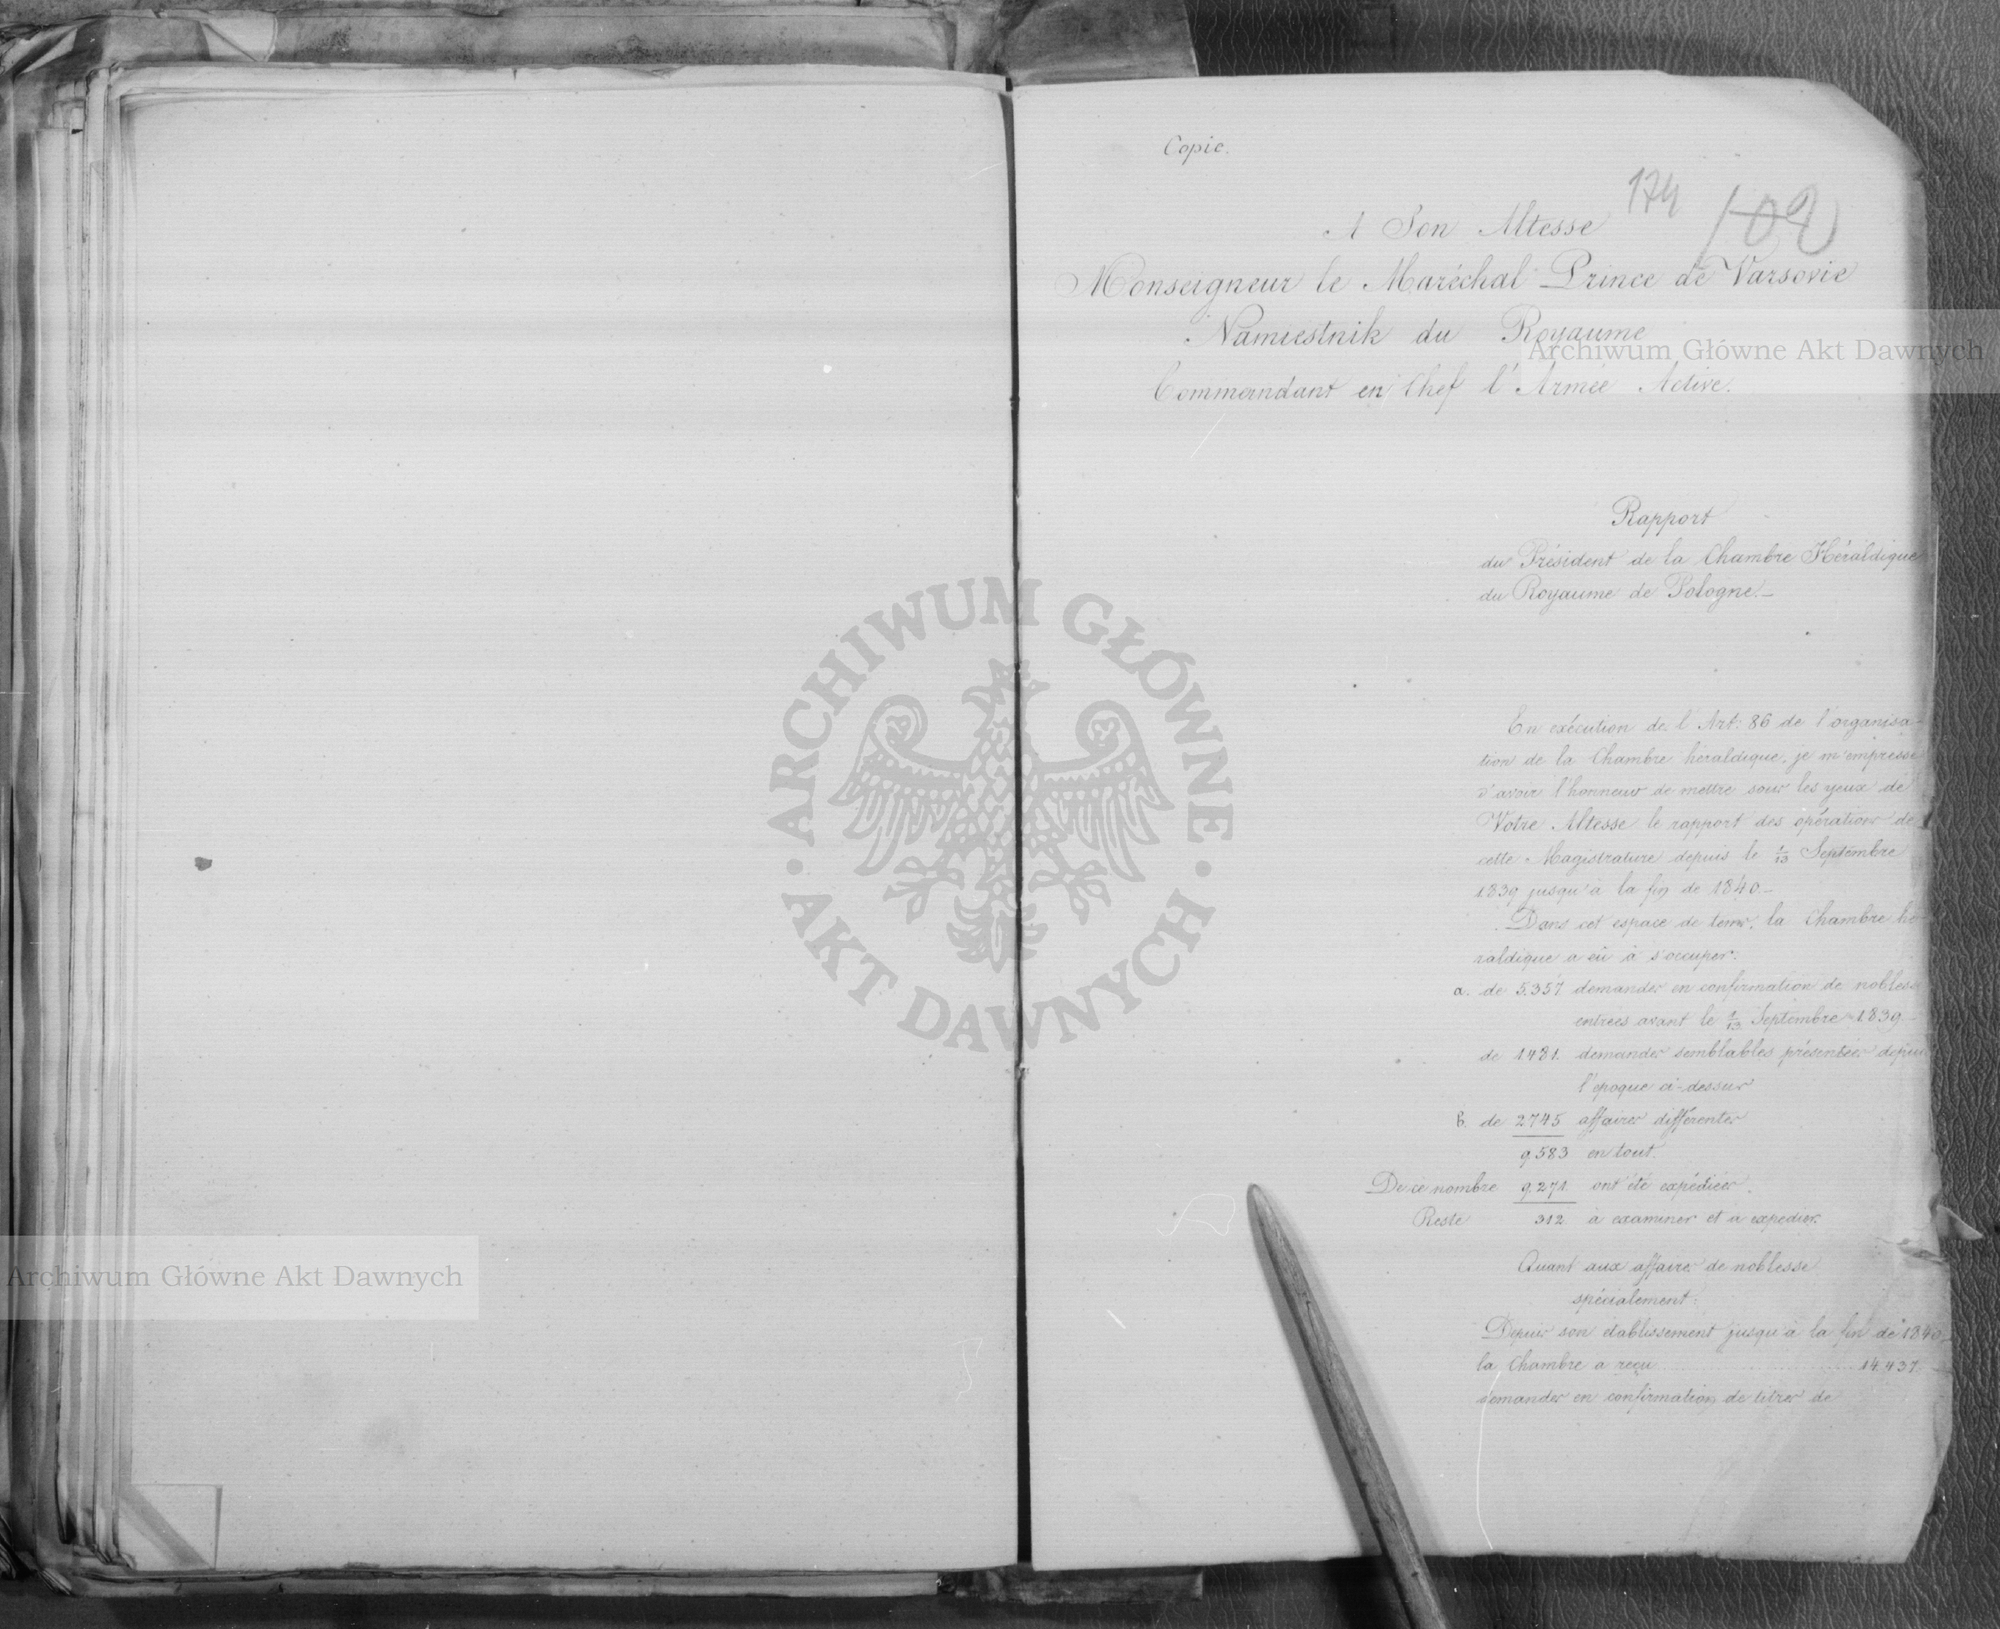 Copie.
174
102
A Son Altesse
Monseigneur le Maréchal Prince de Varsovie
Namiestnik du Royaume
Commandant en Chef l'Armée Active.
Rapport
du Président de la Chambre Héraldique
du Royaume de Pologne.–
En exécution de l'Art: 86 de l'organisa-
tion de la Chambre héraldique, je m'empresse
d'avoir l'honneur de mettre sous les yeux de
Votre Altesse le rapport des opérations de
cette Magistrature depuis le 1/13 Septembre
1839 jusqu'à la fin de 1840.–
Dans cet espace de tems, la Chambre hé-
raldique a eù à s'occuper:
a. de 5.357 demandes en confirmation de noblesse
entrées avant le 1/13 Septembre 1839
de 1481. demandes semblables présentées depuis
l'époque ci-dessus
b. de 2745 affaires différentes
9583 en tout.
De ce nombre 9,271. ont été expédiées.
Reste 312 à examiner et à expédier.
Quant aux affaires de noblesse
spécialement:
Depuis son établissement jusqu'à la fin de 1840
la Chambre a reçu 14.437.
demandes en confirmation de titres de
Archiwum Główne Akt Dawnych
Archiwum Główne Akt Dawnych
ARCHIWUM GŁÓWNE · AKT DAWNYCH ·